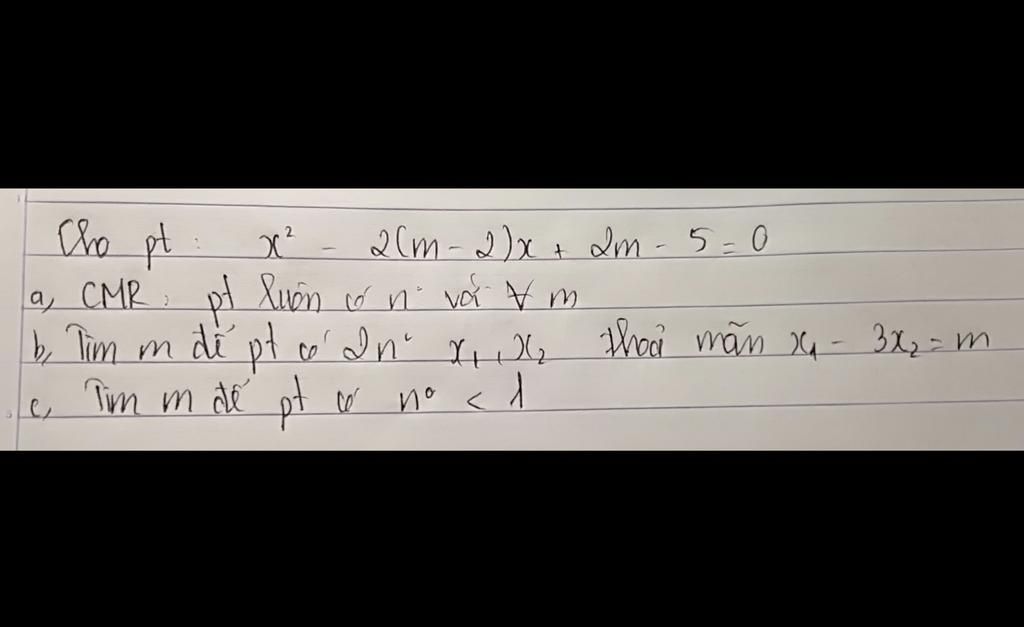 Cho pt : x² - 2(m-2)x + 2m - 5 = 0
a, CMR : pt luôn có n° với ∀ m
b, Tìm m để pt có 2n° x₁, x₂ thoả mãn x₁ - 3x₂ = m
c, Tìm m để pt có n° < 1